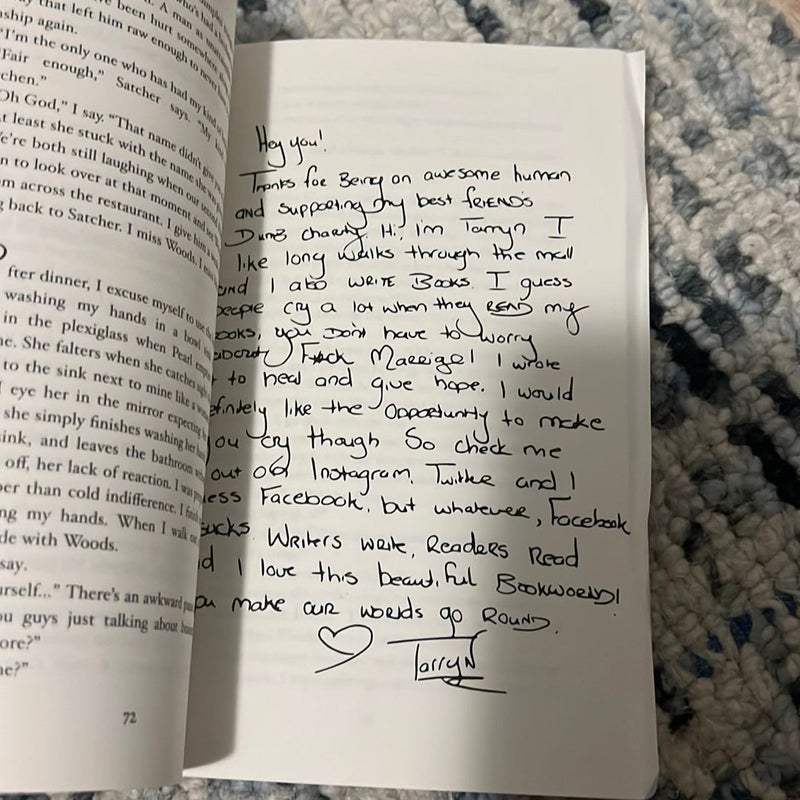 that left him raw enough to never
ship again.
"I'm the only one who has had my kind of
"Fair enough," Satcher says. "My
chen."
Oh God," I say. "That name didn't give
t least she stuck with the name she was
We're both still laughing when our
n to look over at that moment and
m across the restaurant. I give him a
g back to Satcher. I miss Woods. I
fter dinner, I excuse myself to use the
washing my hands in a bowl
in the plexiglass when Pearl
ne. She falters when she catches
to the sink next to mine like a
I eye her in the mirror expecting
she simply finishes washing her
sink, and leaves the bathroom
off, her lack of reaction. I was
per than cold indifference. I
ng my hands. When I walk out
de with Woods.
say.
urself..." There's an awkward
ou guys just talking about
ore?"
ne?"
72
Hey you!
Thanks for Being an awesome human
and supporting my best friends
Dumb charity. Hi, im Tarryn I
like long walks through the mall
and I also WRITE Books. I guess
people cry a lot when they READ my
books, you Dont have to worry
about F*ck Marrige! I wrote
it to heal and give hope. I would
efinitely like the Opportunity to make
you cry though So check me
out on Instagram, Twitter and I
uess Facebook, but whatever, Facebook
sucks. Writers write, Readers Read
nd I love this beautiful Bookworld!
you make our words go ROUND.
♡ Tarryn